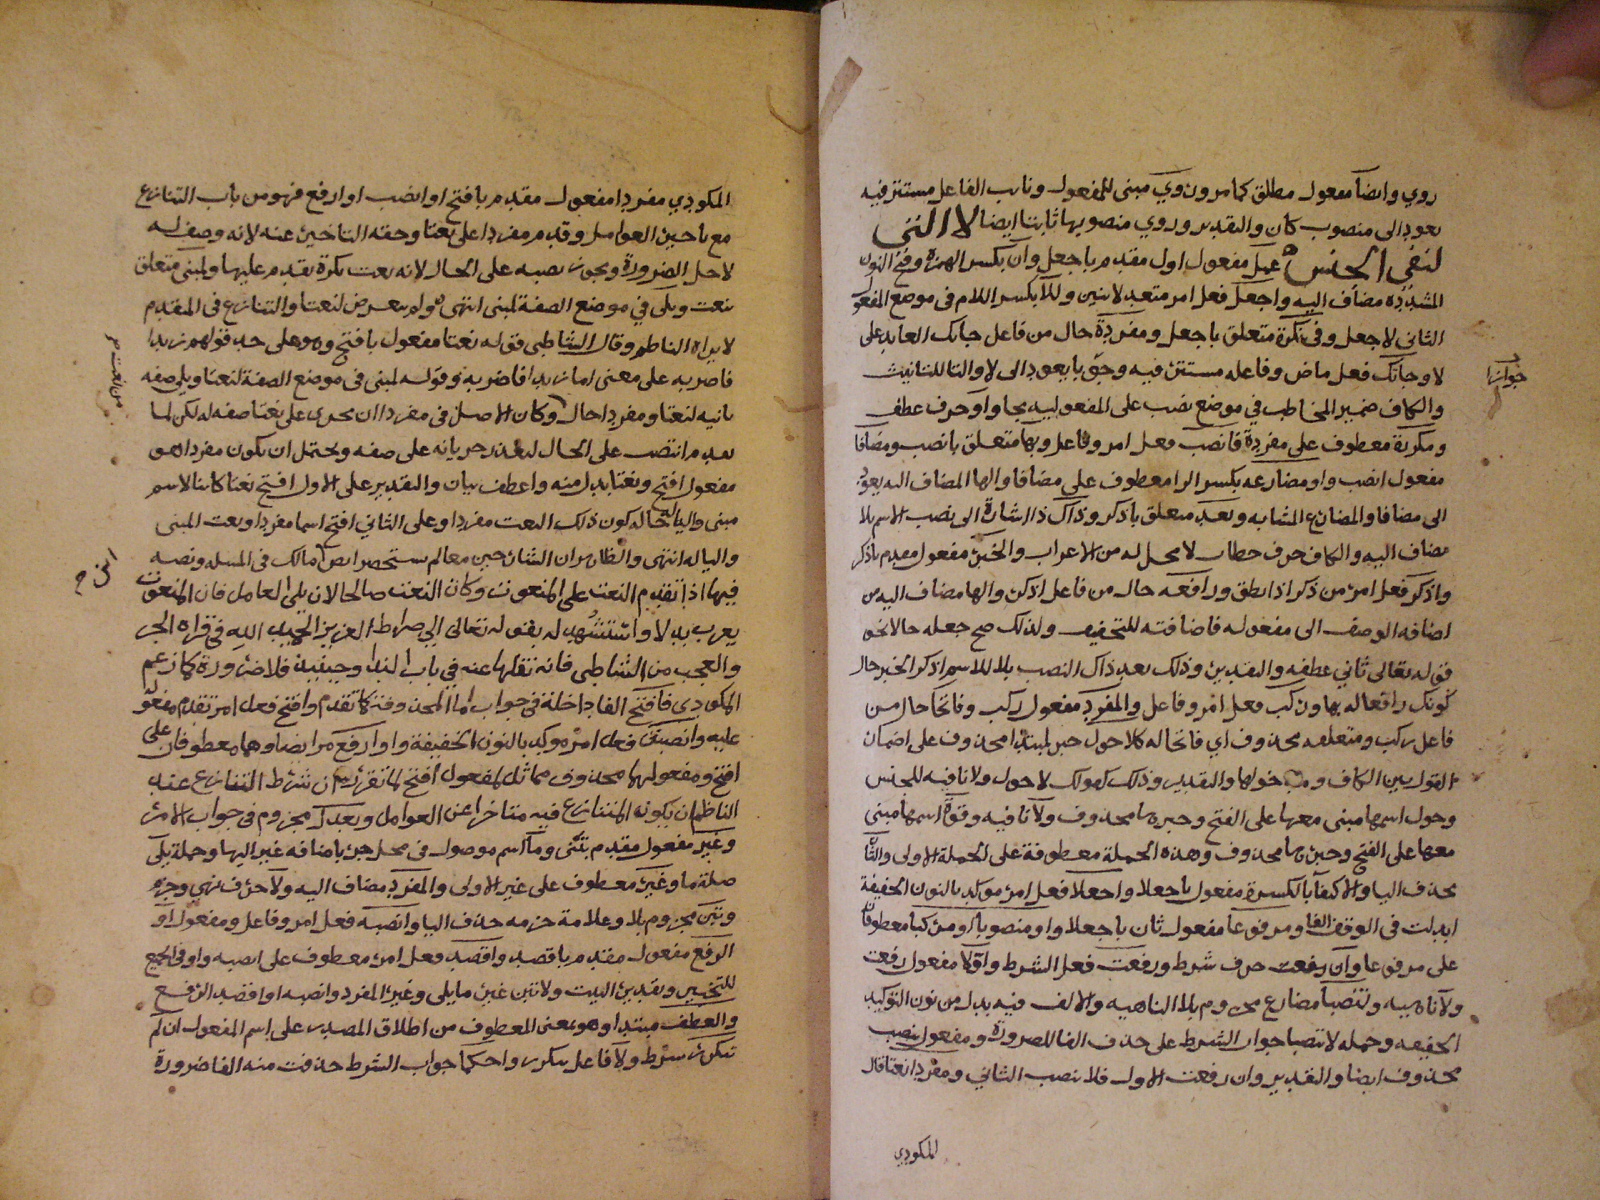 روي وايضا مفعول مطلق كما مر ون وي مبنى للمفعول ونايب الفاعل مستتر فيه
يعود الى منصوب كان والتقدير وروي منصوبها ثابتا ايضا لا التي
لنفي الجنس عمل مفعول اول مقدم باجعل وان بكسر الهمزة وفتح النون
المشددة مضاف اليه واجعل فعل امر متعد لاثنين وللا بكسر اللام فى موضع المفعول
الثانى لاجعل وفى نكرة متعلق باجعل ومفردة حال من فاعل جاتك العايد على
لا وجاتك فعل ماض وفاعله مستتر فيه وجوبا يعود الى لا والتا للتانيث
والكاف ضمير المخاطب في موضع نصب على المفعولية بجا واو حرف عطف
ومكررة معطوف على مفردة فانصب فعل امر وفاعل وبها متعلق بانصب ومضافا
مفعول انصب واو مضارعه بكسر الرا معطوف على مضافا والها المضاف اليه يعود
الى مضافا والمضارع المشابه وبعد متعلق باذكر وذاك ذا اشارة الى نصب الاسم بلا
مضاف اليه والكاف حرف خطاب لا محل له من الاعراب والخبر مفعول مقدم باذكر
واذكر فعل امر من ذكر اذا نطق ورافعه حال من فاعل اذكر والها مضاف اليه من
اضافة الوصف الى مفعوله فاضافته للتخفيف ولذلك صح جعله حالا نحو
قوله تعالى ثاني عطفه والتقدير وذلك بعد ذاك النصب بلا للاسم اذكر الخبر حال
كونك رافعا له بها وركب فعل امر وفاعل والمفرد مفعول ركب وفاتحا حال من
فاعل ركب ومتعلقه محذوف اي فاتحا له كلا حول خبر لمبتدا محذوف على اضمار
القول بين الكاف ومدخولها والتقدير وذلك كقولك لا حول ولا نافية للجنس
وحول اسمها مبنى معها على الفتح وخبرها محذوف ولا نافية وقوة اسمها مبنى
معها على الفتح وخبرها محذوف وهذه الجملة معطوفة على الجملة الاولى والثان
بحذف اليا والاكتفا بالكسرة مفعول باجعلا واجعلا فعل امر موكد بالنون الخفيفة
ابدلت فى الوقف الفا ومرفوعا مفعول ثان باجعلا واو منصوبا او مركبا معطوفان
على مرفوعا وان رفعت حرف شرط ورفعت فعل الشرط واولا مفعول رفعت
ولا ناهية وتنصبا مضارع مجزوم بلا الناهية والالف فيه بدل من نون التوكيد
الخفيفه وجمله لا تنصبا جواب الشرط على حذف الفا للضرورة ومفعول تنصب
محذوف ايضا والتقدير وان رفعت الاول فلا تنصب الثاني ومفردا نعتا قال
المكودي
المكودي مفردا مفعول مقدم بافتح او انصب او ارفع فهو من باب التنازع
مع تاخير العوامل وقدم مفردا على نعتا وحقه التاخير عنه لانه وصف له
لاجل الضرورة ويجوز نصبه على الحال لانه نعت نكرة تقدم عليها ولمبنى متعلق
بنعت ويلى في موضع الصفة لمبنى انتهى ولم يتعرض لنعتا والتنازع فى المقدم
لا يراه الناظم وقال الشاطبى قوله نعتا مفعول بافتح وهو على حد قولهم زيدا
فاضربه على معنى اما زيدا فاضربه وقوله لمبنى فى موضع الصفة لنعتا ويلى صفه
ثانيه لنعتا ومفردا حال وكان الاصل فى مفردا ان يجرى على نعتا صفه له لكن لما
تقدم انتصب على الحال لتعذر جريانه على صفه ويحتمل ان يكون مفردا هو
مفعول افتح ونعتا بدل منه واعطف بيان والتقدير على الاول افتح نعتا كاينا لاسم
مبنى واليا له حالة كون ذلك النعت مفردا وعلى الثاني افتح اسما مفردا ونعت المبنى
واليا له انتهى والظاهر ان الشارحين معا لم يستحضرا نص ابن مالك فى المسلة ونصه
فيها اذا تقدم النعت على المنعوت وكان النعت صالحا لان يلى العامل فان المنعوت
يعرب بدلا واستشهد له بقوله تعالى الى صراط العزيز الحميد الله في قراة الجر
والعجب من الشاطبى فانه نقلها عنه في باب الندا وحينيذ فلا ضرورة كما زعم
المكودي فافتح الفا داخلة فى جواب اما المحذوفة كما تقدم وافتح فعل امر تقدم مفعول
عليه وانصبن فعل امر موكد بالنون الخفيفة واو ارفع مر ايضا وهما معطوفان على
افتح ومفعولهما محذوف مماثل لمفعول افتح لما تقرر من ان شرط التنازع عند
الناظم ان يكون المتنازع فيه متاخرا عن العوامل وتعدل مجزوم فى جواب الامر
وغير مفعول مقدم بتبنى وما اسم موصول فى محل جر باضافه غير اليها وجملة يلى
صلة ما وغير معطوف على غير الاولى والمفرد مضاف اليه ولا حرف نهى وجزم
وتبن مجزوم بلا وعلامة جزمه حذف اليا وانصبه فعل امر وفاعل ومفعول او
الرفع مفعول مقدم باقصد واقصد فعل امر معطوف على انصبه واو فى الجميع
للتخيير وتقدير البيت ولا تبن غير ما يلى وغير المفرد وانصبه او اقصد الرفع
والعطف مبتدا وهو بمعنى المعطوف من اطلاق المصدر على اسم المفعول ان لم
تتكرر شرط ولا فاعل تتكرر واحكما جواب الشرط حذفت منه الفا ضرورة